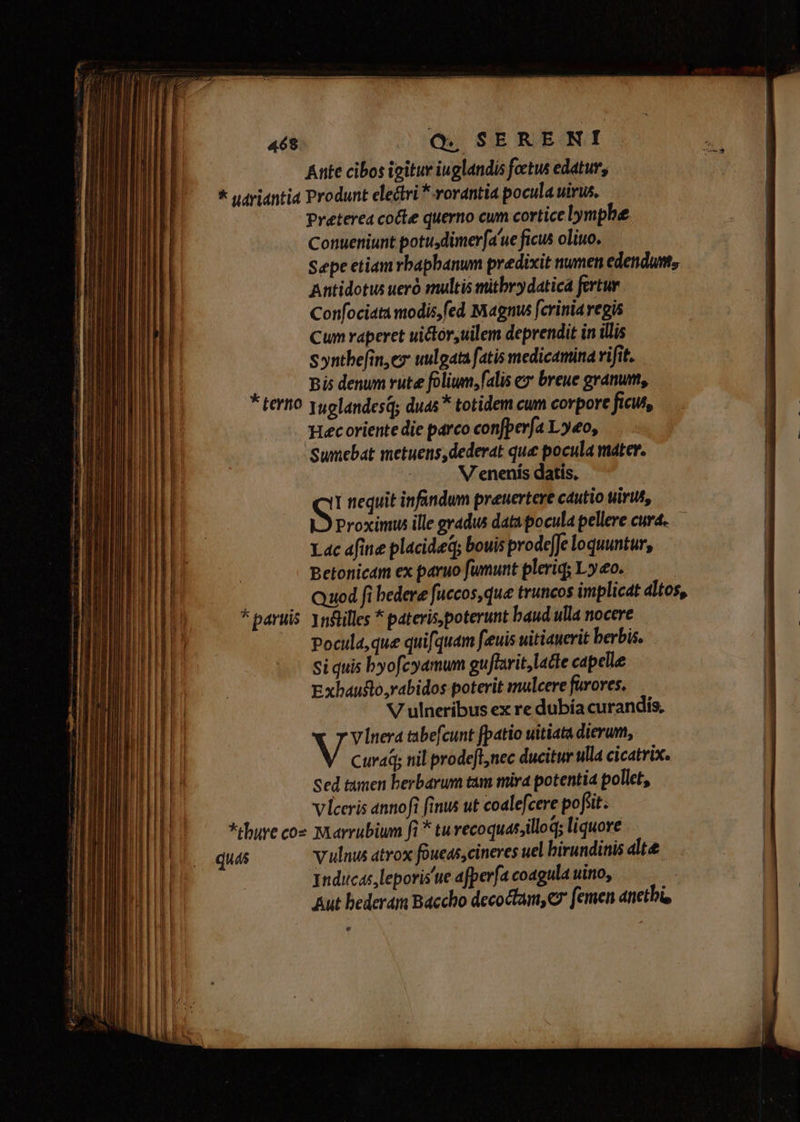 468 Q. SERENI
Ante cibos igitur iuglandis fœtus edatur,
* uariantia Produnt electri * rorantia pocula uirus.
Præterea coctæ querno cum cortice lymphæ
Conueniunt potu, dimersa'ue ficus oliuo.
Sæpe etiam rhaphanum prædixit numen edendum,
Antidotus uerò multis mithrydatica fertur
Consociata modis, sed Magnus scrinia regis
Cum raperet uictor, uilem deprendit in illis
Synthesin, & uulgata satis medicamina risit.
Bis denum rutæ folium, salis & breue granum,
* terno Iuglandesq; duas * totidem cum corpore ficus,
Hæc oriente die parco conspersa Lyæo,
Sumebat metuens, dederat quæ pocula mater.
Venenis datis.
SI nequit infandum præuertere cautio uirus,
Proximus ille gradus data pocula pellere cura.
Lac asinæ placidæq; bouis prodesse loquuntur,
Betonicam ex paruo sumunt pleriq; Lyæo.
Quod si hederæ succos, quæ truncos implicat altos,
* paruis Instilles * pateris, poterunt haud ulla nocere
Pocula, quæ quisquam sæuis uitiauerit herbis.
Si quis hyoscyamum gustarit, lacte capellæ
Exhausto, rabidos poterit mulcere furores.
Vulneribus ex re dubia curandis.
VVlnera tabescunt spatio uitiata dierum,
Curaq; nil prodest, nec ducitur ulla cicatrix.
Sed tamen herbarum tam mira potentia pollet,
Vlceris annosi sinus ut coalescere possit.
*thure co= Marrubium si * tu recoquas, illoq; liquore
quas Vulnus atrox foueas, cineres uel hirundinis altæ
Inducas, leporis'ue aspersa coagula uino,
Aut hederam Baccho decoctam, & semen anethi,